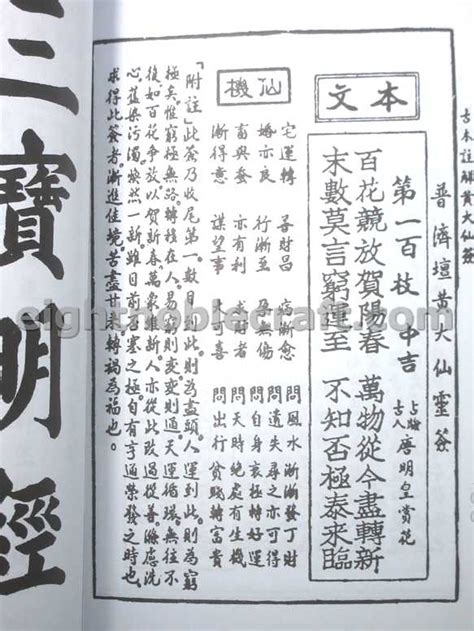 古本註解黃大仙簽
普濟壇黃大仙靈簽
本文
第一百枝 中吉 占驗古人 唐明皇賞花
百花競放賀陽春 萬物從今盡轉新
末數莫言窮運至 不知否極泰來臨
仙機
宅運轉 財昌 病漸愈 問風水漸漸發丁財
婚亦良 行漸至 孕無傷 問遺失尋之亦可得
畜與蠶 亦有利 求財者 問自身衰極轉好運
漸得意 謀望事 可喜 問天時絕處有生機
問出行貧賤轉富貴
「附註」此簽乃收尾第一數。數目到此，則為盡頭，人運到此，則為窮
極矣。惟窮極無路，轉移在人，易窮則變，變則通，天運循環，無往不
復，如百花爭放，以賀新春，萬象維新，人亦從此改過從善，滌慮洗
心，染污濁，煥然一新，雖目前否塞之極，自有亨通榮發之時也，
求得此簽者，漸進佳境，苦盡甘來，轉禍為福也。
三寶明經
eightnoblecraft.com